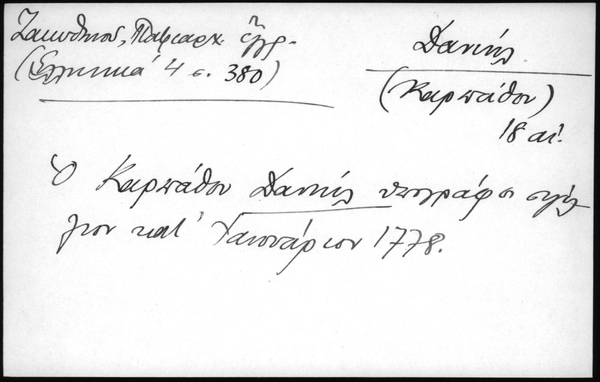 Ζακυθηνού, Πατριαρχ. ἔγγρ.
(Ἑλληνικά 4 σ. 380)
Δανιήλ
(Καρπάθου)
18 αἰ.
Ὁ Καρπάθου Δανιήλ ὑπογράφει σιγίλ
λιον κατ' Ἰανουάριον 1778.